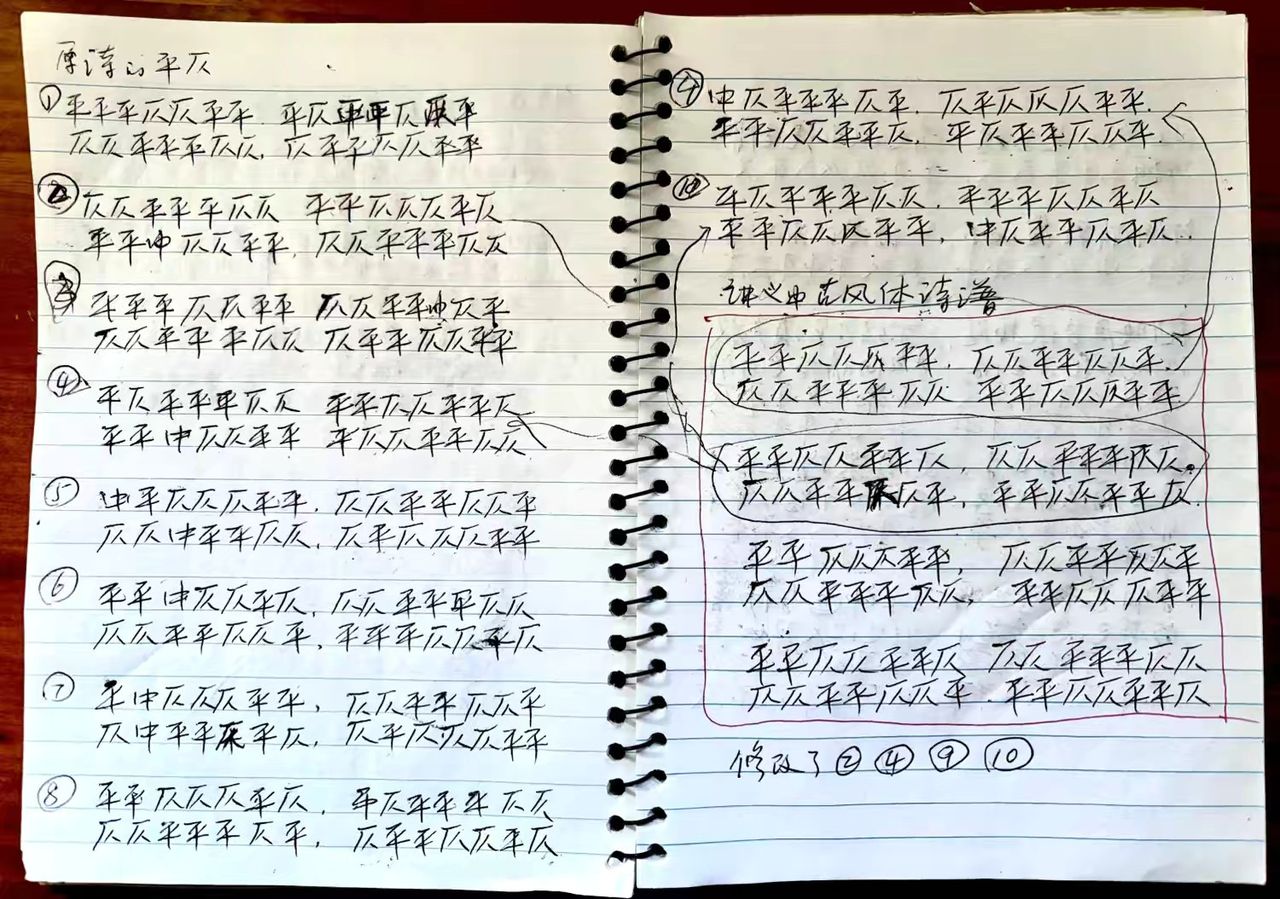 原诗的平仄
① 平平平仄仄平平. 平仄平平仄平
仄仄平平平仄仄, 仄平平仄仄平平
② 仄仄平平平仄仄 平平仄仄仄平仄
平平中仄仄平平, 仄仄平平平仄仄
③ 平平平仄仄平平 仄仄平平中仄平
仄仄平平平仄仄 仄平平仄仄平平
④ 平仄平平平仄仄 平平仄仄平平仄
平平中仄仄平平 平仄仄平平仄仄
⑤ 中平仄仄仄平平, 仄仄平平仄仄平
仄仄中平平仄仄, 仄平仄仄仄平平
⑥ 平平中仄仄平仄, 仄仄平平平仄仄
仄仄平平仄仄平, 平平平仄仄平仄
⑦ 平中仄仄仄平平, 仄仄平平仄仄平
仄中平平平仄, 仄平仄仄仄平平
⑧ 平平仄仄仄平仄, 平仄平平平仄仄
仄仄平平平仄平, 仄平平仄仄平仄
⑨ 中仄平平平仄平. 仄平仄仄仄平平.
平平仄仄平平仄, 平仄平平仄仄平.
⑩ 平仄平平平仄仄, 平平平仄仄平仄
平平仄仄仄平平, 中仄平平仄平仄.
讲义中古风体诗谱
平平仄仄仄平平, 仄仄平平仄仄平.
仄仄平平平仄仄 平平仄仄仄平平
平平仄仄平平仄, 仄仄平平平仄仄.
仄仄平平仄平, 平平仄仄平平仄.
平平仄仄仄平平, 仄仄平平仄仄平
仄仄平平平仄仄, 平平仄仄仄平平
平平仄仄平平仄 仄仄平平平仄仄
仄仄平平仄仄平. 平平仄仄平平仄
修改了 ② ④ ⑨ ⑩